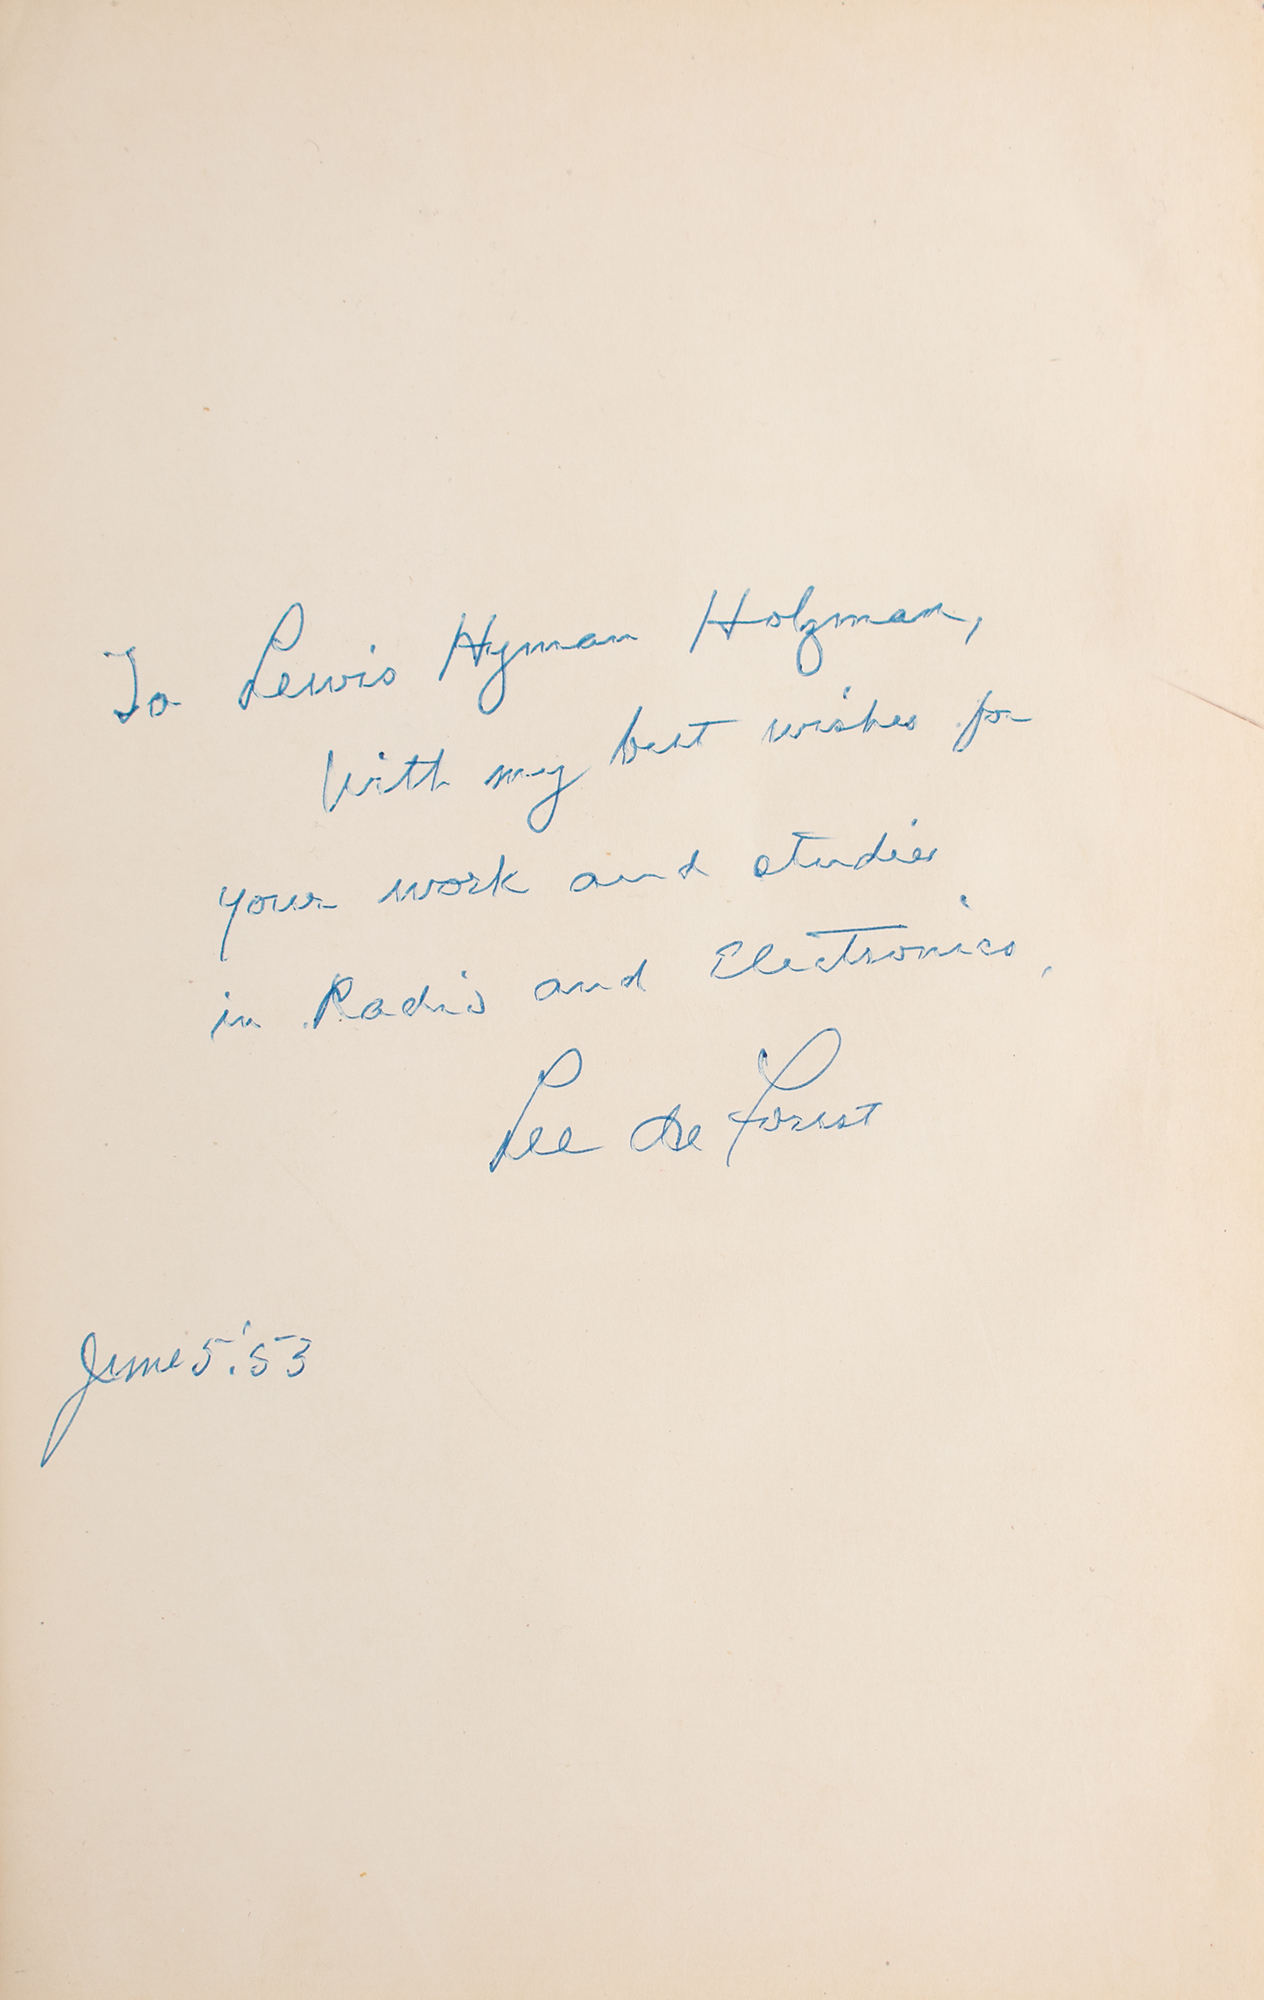 To Lewis Hyman Holzman,
With my best wishes for
your work and studies
in Radio and Electronics.
Lee de Forest
June 5, '53